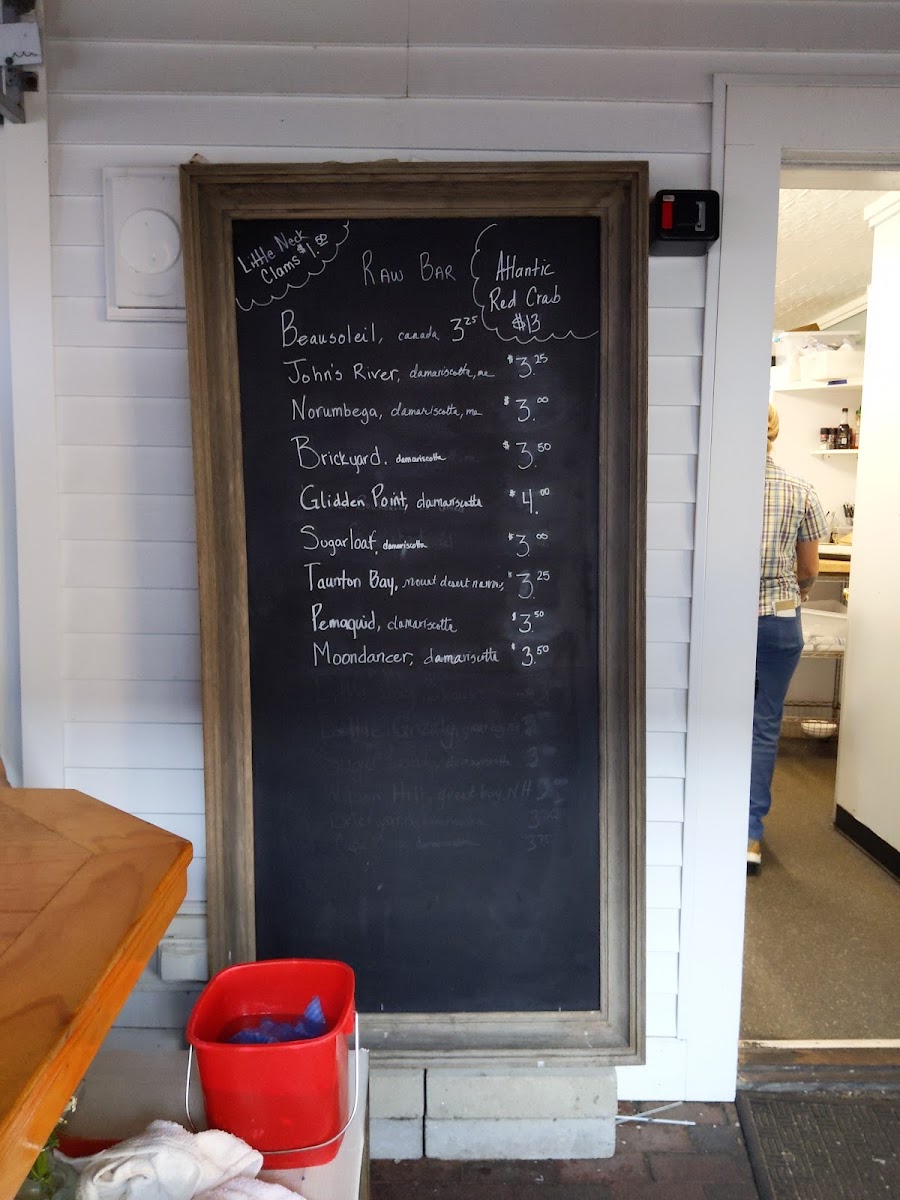 Little Neck
Clams $1.50
RAW BAR
Atlantic
Red Crab
$13
Beausoleil, canada 3.25
John's River, damariscotta, me $3.25
Norumbega, damariscotta, me $3.00
Brickyard. damariscotta $3.50
Glidden Point, damariscotta $4.00
Sugarloaf, damariscotta $3.00
Taunton Bay, mount desert $3.25
Pemaquid, damariscotta $3.50
Moondancer, damariscotta $3.50
Hill, great bay, NH